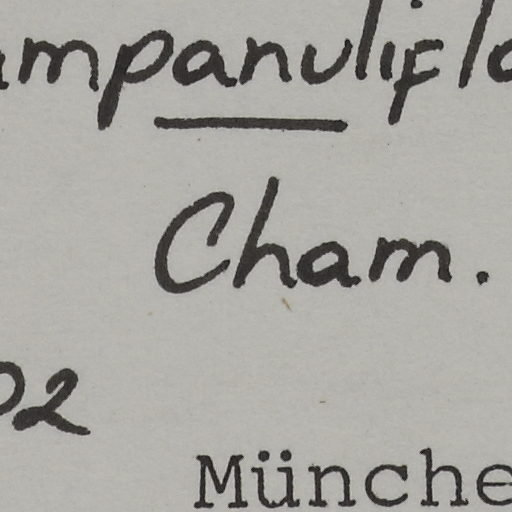 ampanuliflo
Cham.
02
Münche